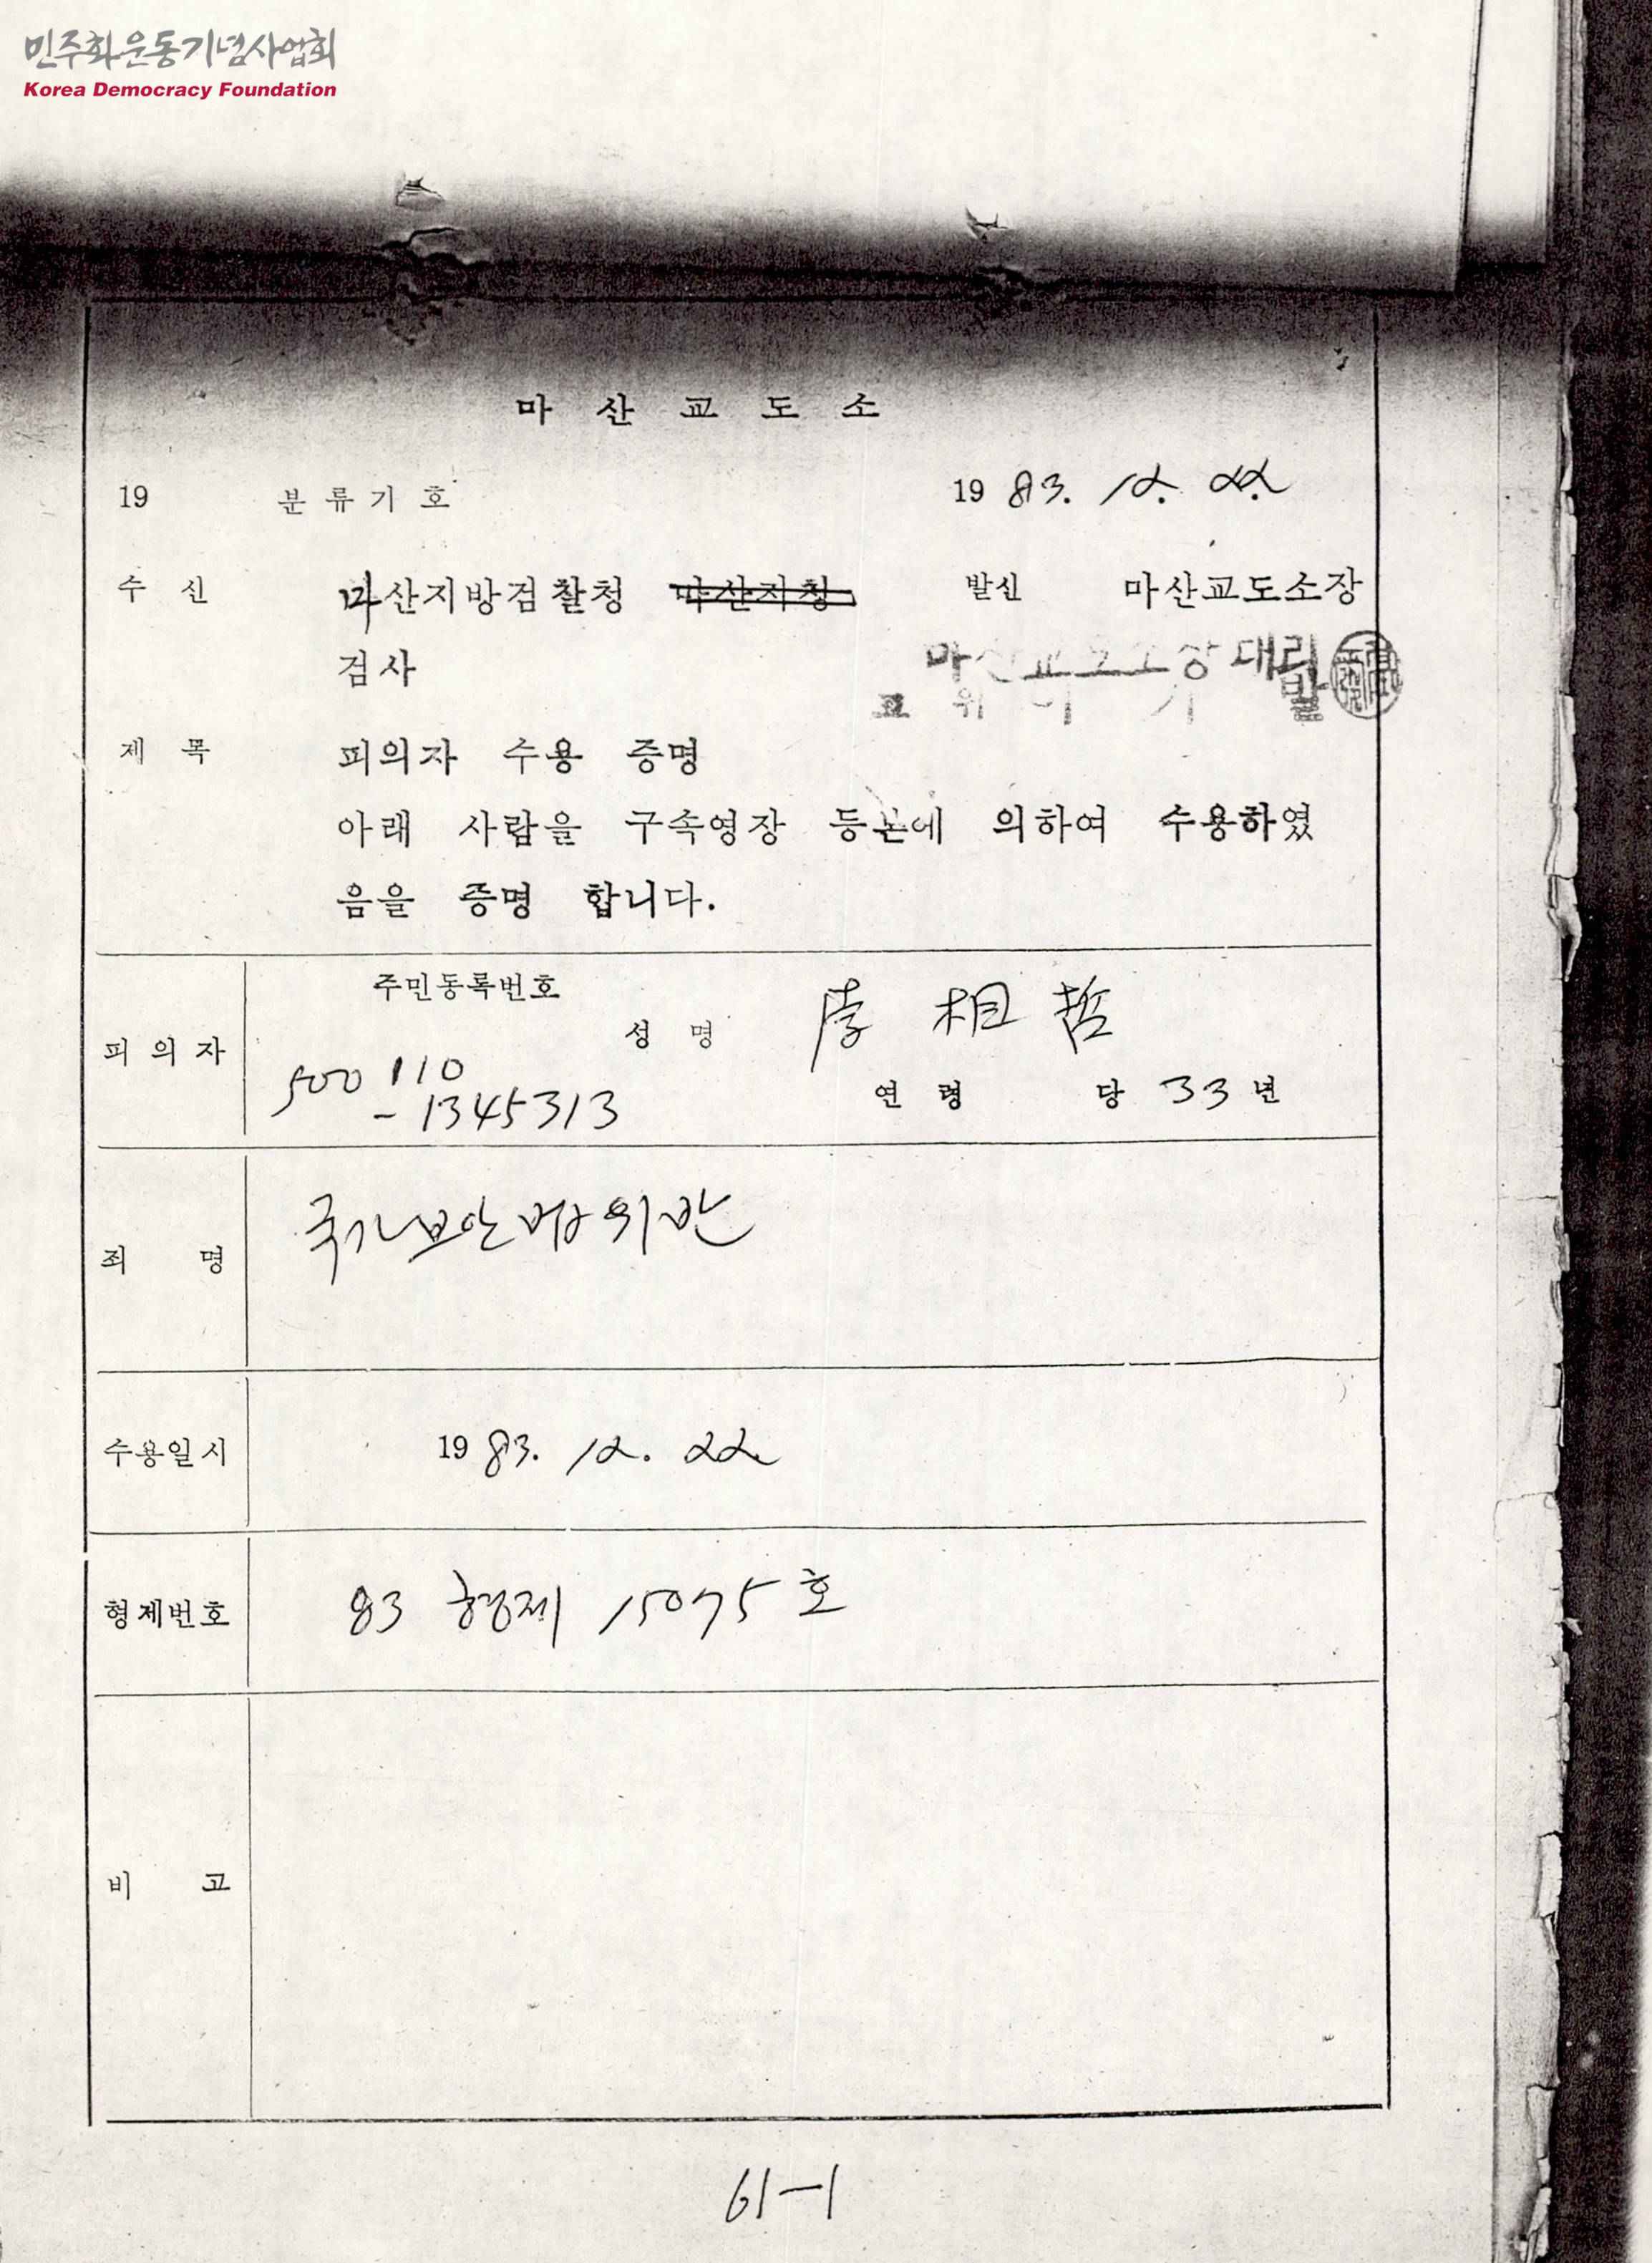 민주화운동기념사업회
Korea Democracy Foundation
마 산 교 도 소
19 분 류 기 호 1983. 12. 22.
수 신 마산지방검찰청 마산지청 발신 마산교도소장
검사 마산교도소장 대리
교 위
제 목 피의자 수용 증명
아래 사람을 구속영장 등본에 의하여 수용하였
음을 증명 합니다.
피 의 자 주민등록번호 성 명 李 相 哲
500110
-1345313
연 령 당 33 년
죄 명 국가보안법위반
수용일시 1983. 12. 22.
형제번호 83 형제 15075 호
비 고
61-1